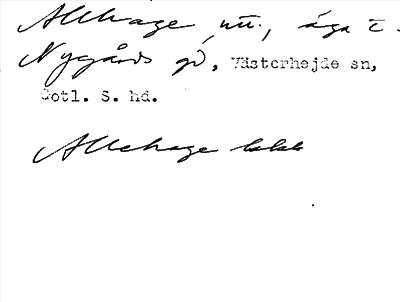 Allehage, nu., äga t.
Nygårds gd, Västerhejde sn,
Gotl. S. hd.
Allehage